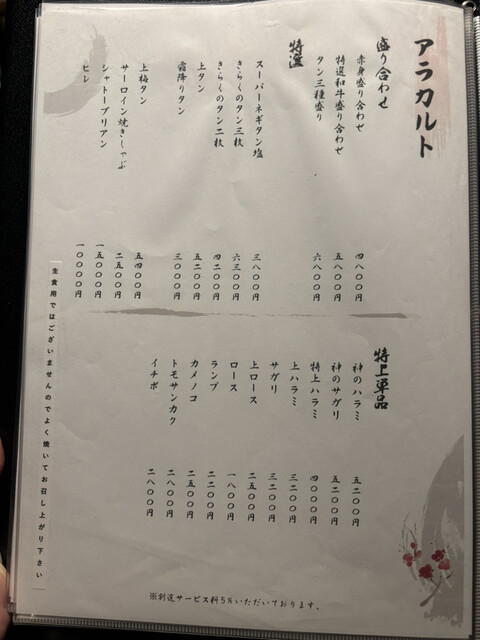 アラカルト
盛り合わせ
赤身盛り合わせ 四八〇〇円
特選和牛盛り合わせ 五八〇〇円
タン三種盛り 六八〇〇円
特選
スーパーネギタン塩 三八〇〇円
きらくのタン三枚 六三〇〇円
きらくのタン二枚 四二〇〇円
上タン 五二〇〇円
霜降りタン 三〇〇〇円
上梅タン 五四〇〇円
サーロイン焼きしゃぶ 二五〇〇円
シャトーブリアン 一五〇〇〇円
ヒレ 一〇〇〇〇円
特上単品
神のハラミ 五二〇〇円
神のサガリ 五二〇〇円
特上ハラミ 四〇〇〇円
上ハラミ 三二〇〇円
サガリ 三二〇〇円
上ロース 二五〇〇円
ロース 一八〇〇円
ランプ 二二〇〇円
カメノコ 二五〇〇円
トモサンカク 二八〇〇円
イチボ 二八〇〇円
生食用ではございませんのでよく焼いてお召し上がり下さい
※別途サービス料5%いただいております。